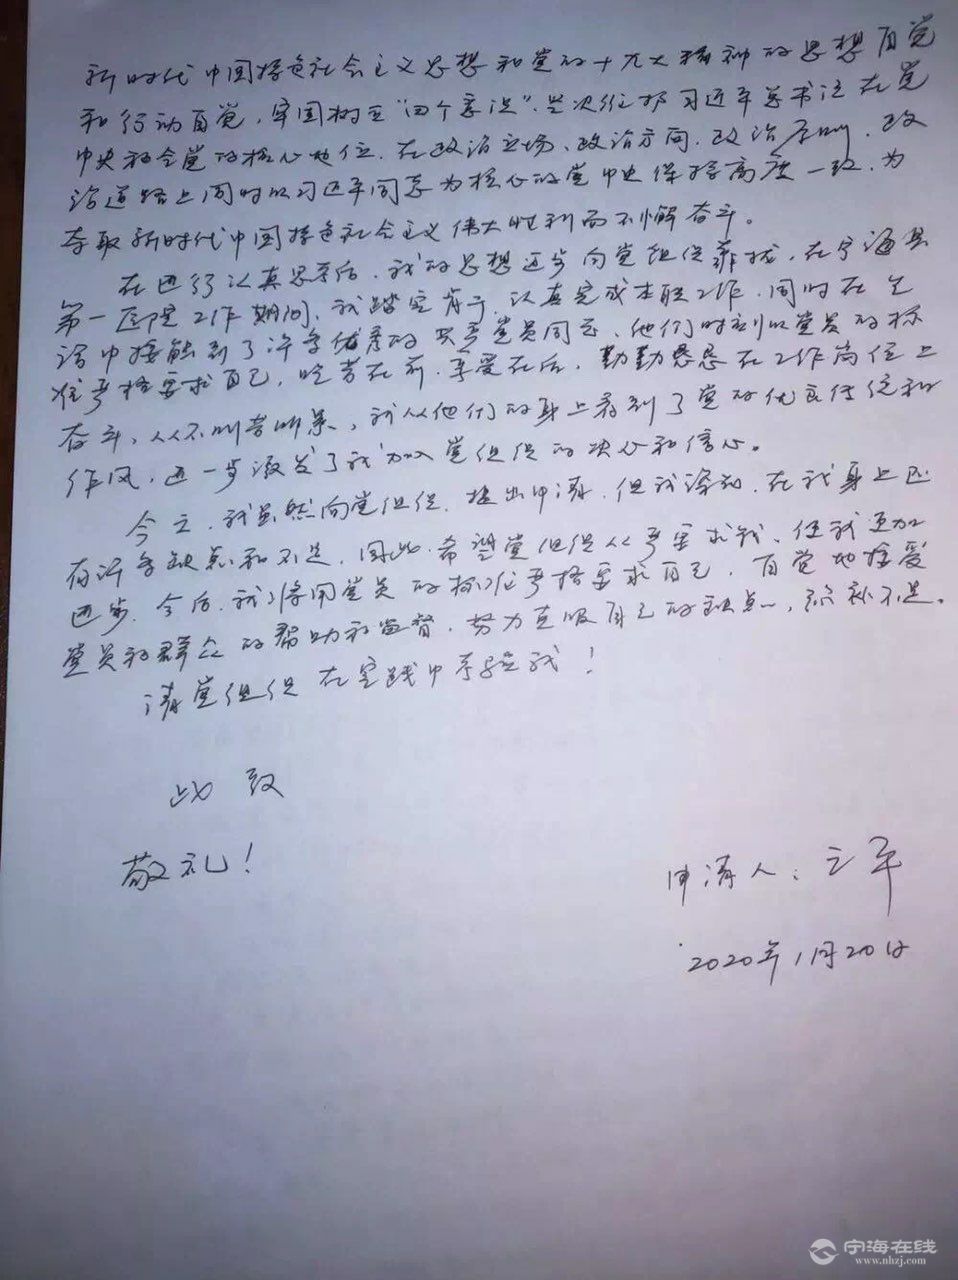 新时代中国特色社会主义思想和党的十九大精神的思想自觉
和行动自觉，牢固树立“四个意识”，坚决维护习近平总书记在党
中央和全党的核心地位，在政治立场、政治方向、政治原则、政
治道路上同时以习近平同志为核心的党中央保持高度一致，为
夺取新时代中国特色社会主义伟大胜利而不懈奋斗。
在进行认真思考后，我的思想进步向党组织靠拢，在宁海县
第一医院工作期间，我踏实肯干，认真完成本职工作，同时在生
活中接触到了许多优秀的共产党员同志，他们时刻以党员的标
准严格要求自己，吃苦在前，享受在后，勤勤恳恳在工作岗位上
奋斗，从不叫苦叫累，我从他们的身上看到了党的优良传统和
作风，进一步激发了我加入党组织的决心和信心。
今天，我虽然向党组织提出申请，但我深知，在我身上还
有许多缺点和不足，因此，希望党组织从严要求我，使我更加
进步。今后，我将用党员的标准严格要求自己，自觉地接受
党员和群众的帮助和监督，努力克服自己的缺点，弥补不足。
请党组织在实践中考验我！
此致
敬礼！
申请人：
2020年1月20日
宁海在线
www.nhzj.com